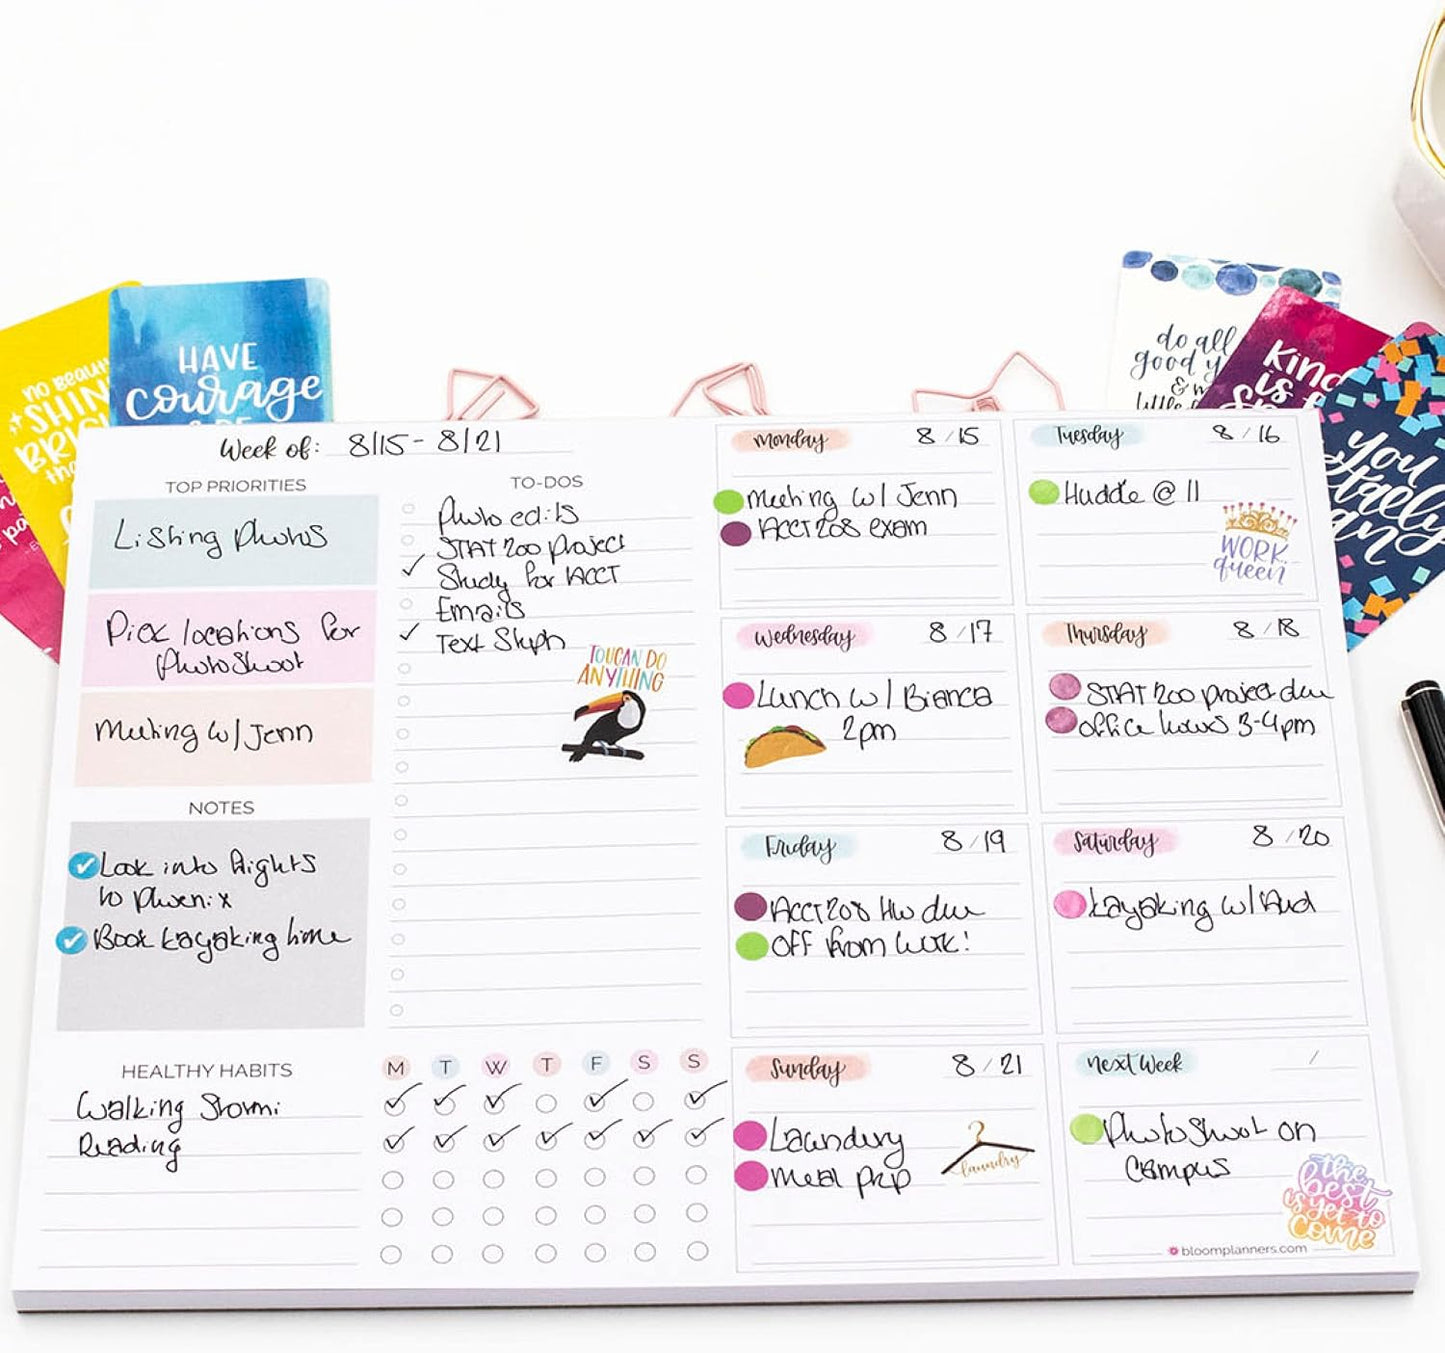 NO BEAUTY
SHIN
BRIG
tha
HAVE
courage
& BE
do all
good y
& w
little
Kind
is f
You
totally
can
Week of: 8/15 - 8/21
TOP PRIORITIES
Listing photos
Pick locations for
photoshoot
Meeting w/ Jenn
NOTES
Look into flights
to Phoenix
Book kayaking time
HEALTHY HABITS
Walking Stormi
Reading
TO-DOS
Photo edits
STAT 200 project
Study for ACCT
Emails
Text Steph
TOUCAN DO
ANYTHING
M T W T F S S
Monday 8/15
Meeting w/ Jenn
ACCT 208 exam
Tuesday 8/16
Huddle @ 11
WORK
queen
Wednesday 8/17
Lunch w/ Bianca
2pm
Thursday 8/18
STAT 200 project due
office hours 3-4pm
Friday 8/19
ACCT 208 HW due
OFF from work!
Saturday 8/20
Kayaking w/ Aud
Sunday 8/21
Laundry
Meal prep
laundry
Next Week /
Photoshoot on
campus
the
best
is yet to
come
bloomplanners.com